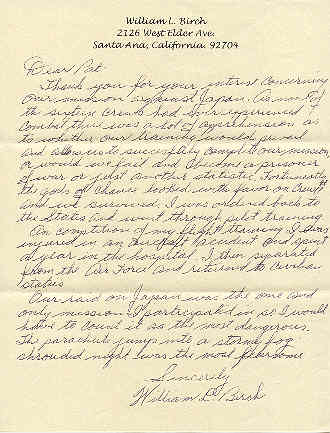 William L. Birch
2126 West Elder Ave.
Santa Ana, California. 92704
Dear Pat
Thank you for your interest concerning
our mission against Japan. As most of
the sixteen crews had never experienced
combat there was a lot of apprehension as
to whether our training would guard
and allow us to succesfully complete our mission
or would we fail and become a prisoner
of war or just another statistic. Fortunately
the gods of chance looked with favor on Crew #11
and we survived. I was ordered back to
the States and went through pilot training.
On completion of my flight training I was
injured in an aircraft accident and spent
a year in the hospital. I then separated
from the Air Force and returned to civilian
status
Our raid on Japan was the one and
only mission I participated in so I would
have to count it as the most dangerous.
The parachute jump into a stormy fog
shrouded night was the most fearsome
Sincerely
William L. Birch